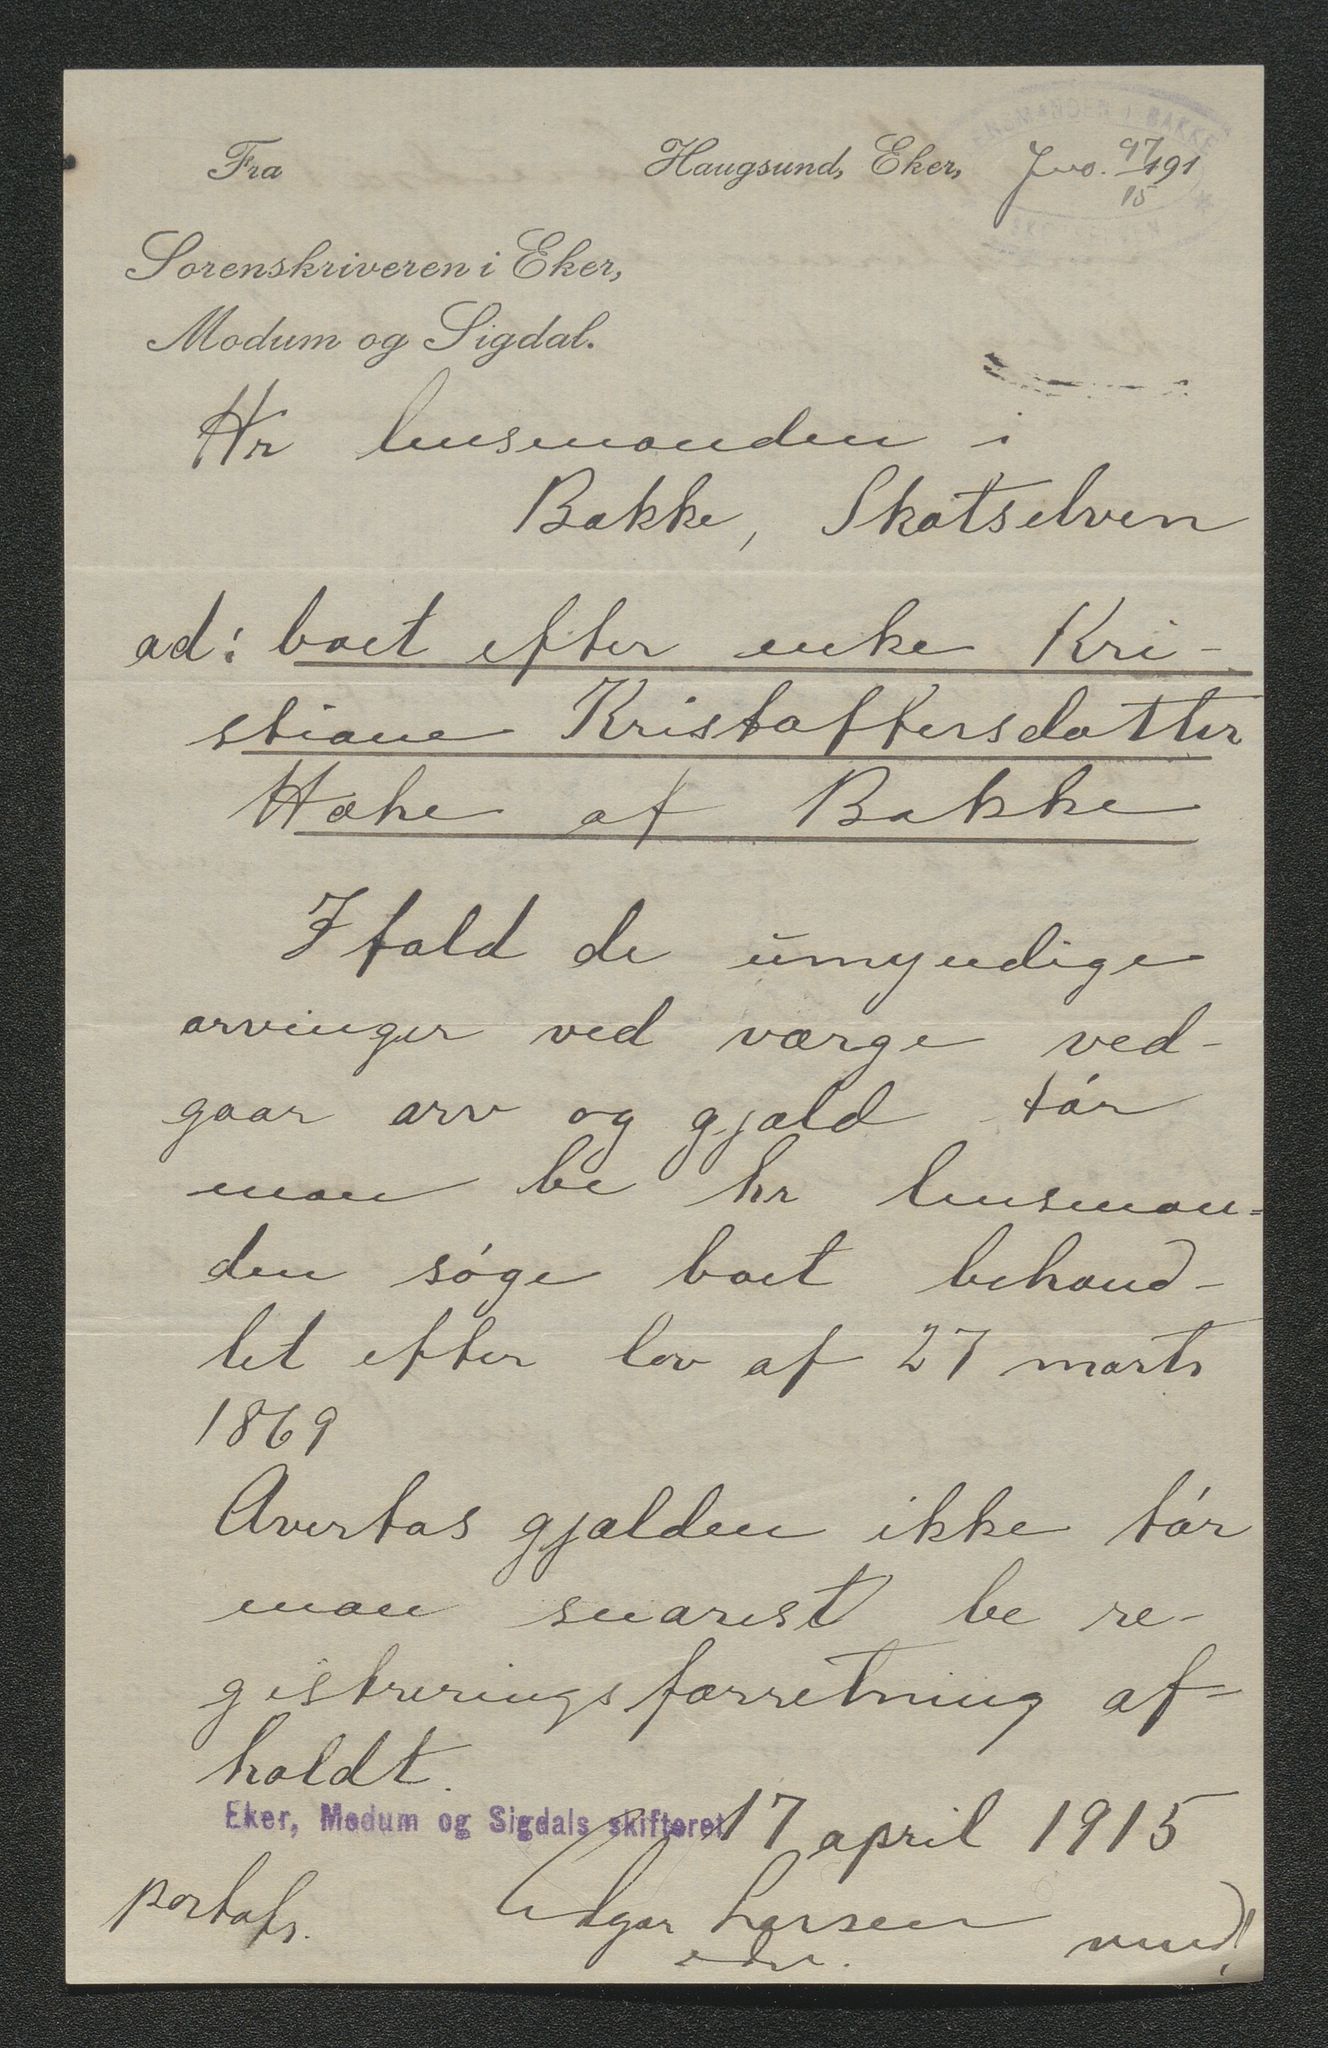 Fra
Haugsund, Eker, Jno. 97/15 191
LENSMANDEN I BAKKE
Sorenskriveren i Eker,
Modum og Sigdal.
Hr lensmanden i
Bakke, Skotselven
ad: boet efter enke Kri-
stiane Kristoffersdatter
Hæhre af Bakke
I fald de umyndige
arvinger ved værge ved-
gaar arv og gjæld tór
man be hr lensman-
den sóge boet behand-
let efter lov af 27 marts
1869
Overtas gjælden ikke tór
man snarest be re-
gistreringsforretning af-
holdt.
Eker, Modum og Sigdals skifteret 17 april 1915
portofr.
Edgar Larsen
edv.
vend!